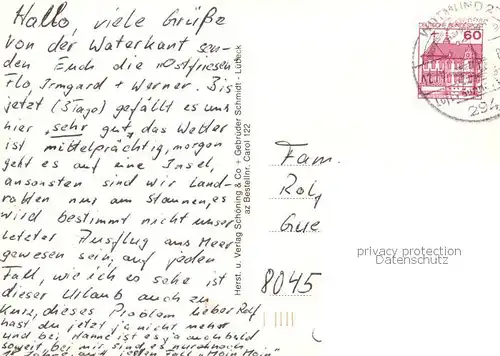 Hallo, viele Grüße
von der Waterkant sen-
den Euch die "Ostfriesen"
Flo, Irmgard + Werner. Bis
jetzt (3 Tage) gefällt es uns
hier sehr gut, das Wetter
ist mittelprächtig, morgen
geht es auf eine Insel,
ansonsten sind wir Land-
ratten nur am Staunen, es
wird bestimmt nicht unser
letzter Ausflug ans Meer
gewesen sein, auf jeden
Fall, wie ich es sehe ist
dieser Urlaub auch zu
kurz, dieses Problem lieber Rolf
hast du jetzt ja nicht mehr
und bei Hanne ist es ja auch bald
soweit, bei mir sind es nur noch
Jahre, auf jeden Fall "Moin Moin"
Herst. u. Verlag Schöning & Co + Gebrüder Schmidt - Lübeck
az Bestellnr. Carol 122
60
Fam.
Rol
Gue
8045
privacy protection
Datenschutz